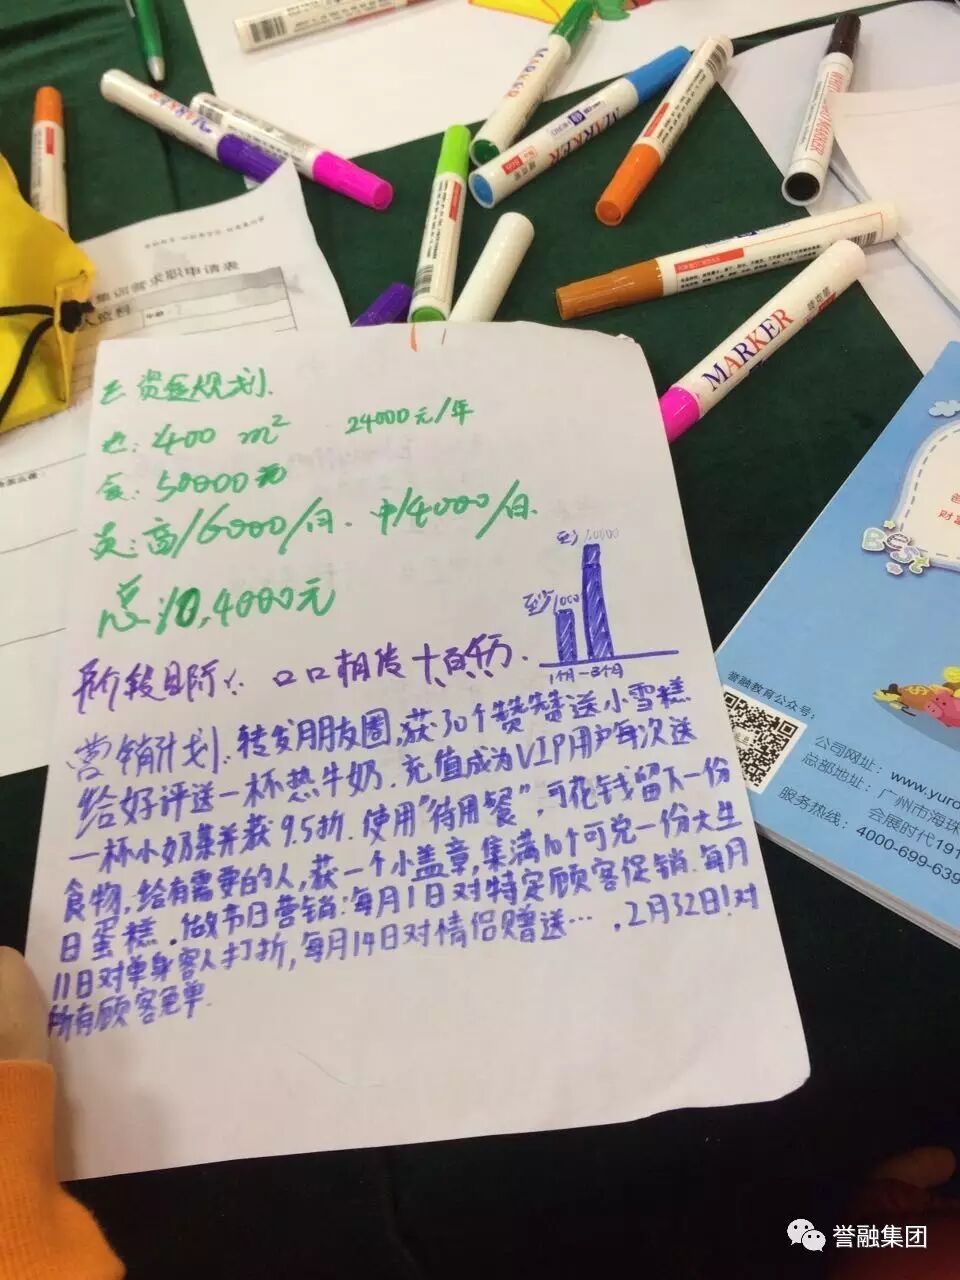 MARKER
MARKER
MARKER
MARKER
WHITEBOARD MARKER
MARKER
集训营求职申请表
人资料
资金规划.
地: 400 m² 24000元/年
食: 50000元
员: 高/6000/月. 中/4000/月.
总: 10,4000元
至少1000
至少10000
1个月-3个月
阶段目标: 口口相传 十、百、千、万.
营销计划: 转发朋友圈, 获30个赞赞赞送小雪糕
给好评送一杯热牛奶. 充值成为VIP用户每次送
一杯小奶集并获9.5折. 使用"待用餐", 可花钱留下一份
食物, 给有需要的人, 获一个小盖章, 集满10个可兑一份大生
日蛋糕. 做节日营销: 每月1日对特定顾客促销. 每月
11日对单身客人打折, 每月14日对情侣赠送…, 2月32日!对
所有顾客免单.
Best
财富
誉融教育公众号:
公司网址: www.yuro
总部地址: 广州市海珠
会展时代191
服务热线: 4000-699-639
誉融集团